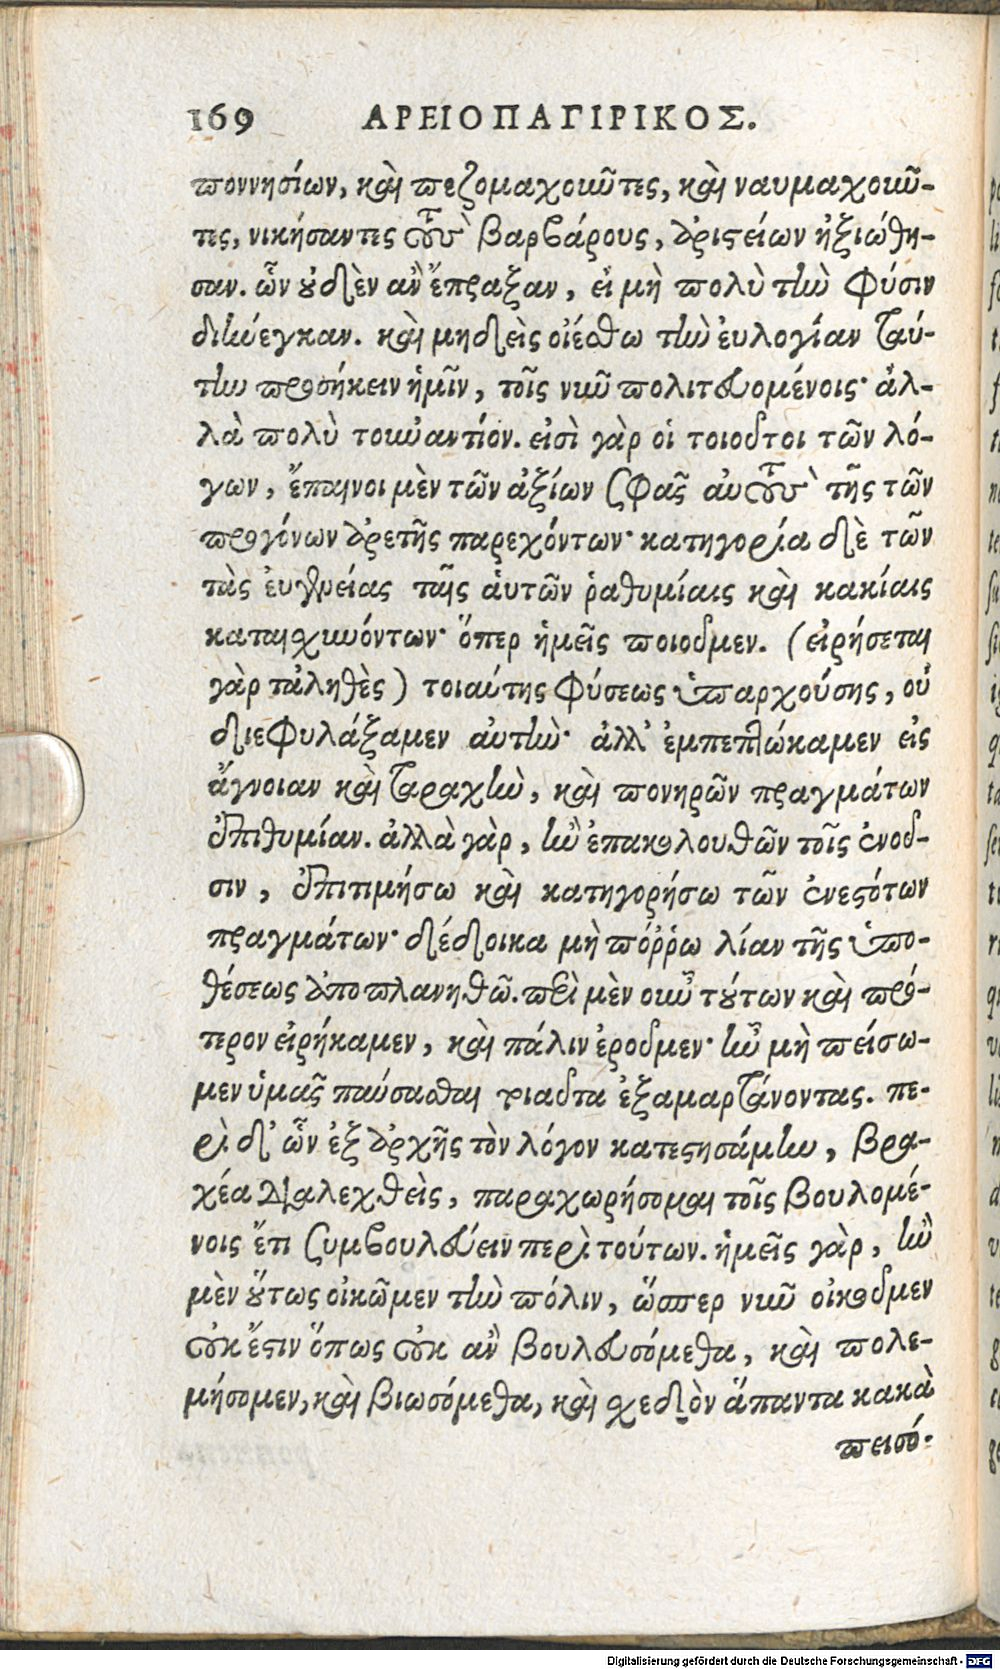 169 ΑΡΕΙΟΠΑΓΙΡΙΚΟΣ.
ποννησίων, καὶ πεζομαχοιῦτες, καὶ ναυμαχοιῦ-
τες, νικήσαντες τοὺς βαρβάρους, ἀριστείων ἠξιώθη-
σαν. ὧν οὐδὲν ἂν ἔπραξαν, εἰ μὴ πολὺ τὴν φύσιν
διήνεγκαν. καὶ μηδεὶς οἰέσθω τὴν εὐλογίαν ταύ-
την προσήκειν ἡμῖν, τοῖς νῦν πολιτευομένοις· ἀλ-
λὰ πολὺ τοὐναντίον. εἰσὶ γὰρ οἱ τοιοῦτοι τῶν λό-
γων, ἔπαινοι μὲν τῶν ἀξίων σφᾶς αὐτοὺς τῆς τῶν
προγόνων ἀρετῆς παρεχόντων· κατηγορία δὲ τῶν
τὰς εὐγενείας ταῖς αὑτῶν ῥαθυμίαις καὶ κακίαις
καταισχυνόντων· ὅπερ ἡμεῖς ποιοῦμεν. (εἰρήσεται
γὰρ τἀληθὲς) τοιαύτης φύσεως ὑπαρχούσης, οὐ
διεφυλάξαμεν αὐτὴν· ἀλλ᾽ ἐμπεπτώκαμεν εἰς
ἄγνοιαν καὶ ταραχὴν, καὶ πονηρῶν πραγμάτων
ἐπιθυμίαν. ἀλλὰ γὰρ, ἢν ἐπακολουθῶν τοῖς ἐνοῦ-
σιν, ἐπιτιμήσω καὶ κατηγορήσω τῶν ἐνεστότων
πραγμάτων· δέδοικα μὴ πόῤῥω λίαν τῆς ὑπο-
θέσεως ἀποπλανηθῶ. περὶ μὲν οὖν τούτων καὶ πρό-
τερον εἰρήκαμεν, καὶ πάλιν ἐροῦμεν· ἢν μὴ πείσω-
μεν ὑμᾶς παύσασθαι τοιαῦτα ἐξαμαρτάνοντας. πε-
ρὶ δ᾽ ὧν ἐξ ἀρχῆς τὸν λόγον κατεστησάμην, βρα-
χέα διαλεχθεὶς, παραχωρήσομαι τοῖς βουλομέ-
νοις ἔτι συμβουλεύειν περὶ τούτων. ἡμεῖς γὰρ, ἢν
μὲν οὕτως οἰκῶμεν τὴν πόλιν, ὥσπερ νῦν οἰκοῦμεν
οὐκ ἔστιν ὅπως οὐκ ἂν βουλευσόμεθα, καὶ πολε-
μήσομεν, καὶ βιωσόμεθα, καὶ σχεδὸν ἅπαντα κακὰ
πεισό-
Digitalisierung gefördert durch die Deutsche Forschungsgemeinschaft - DFG